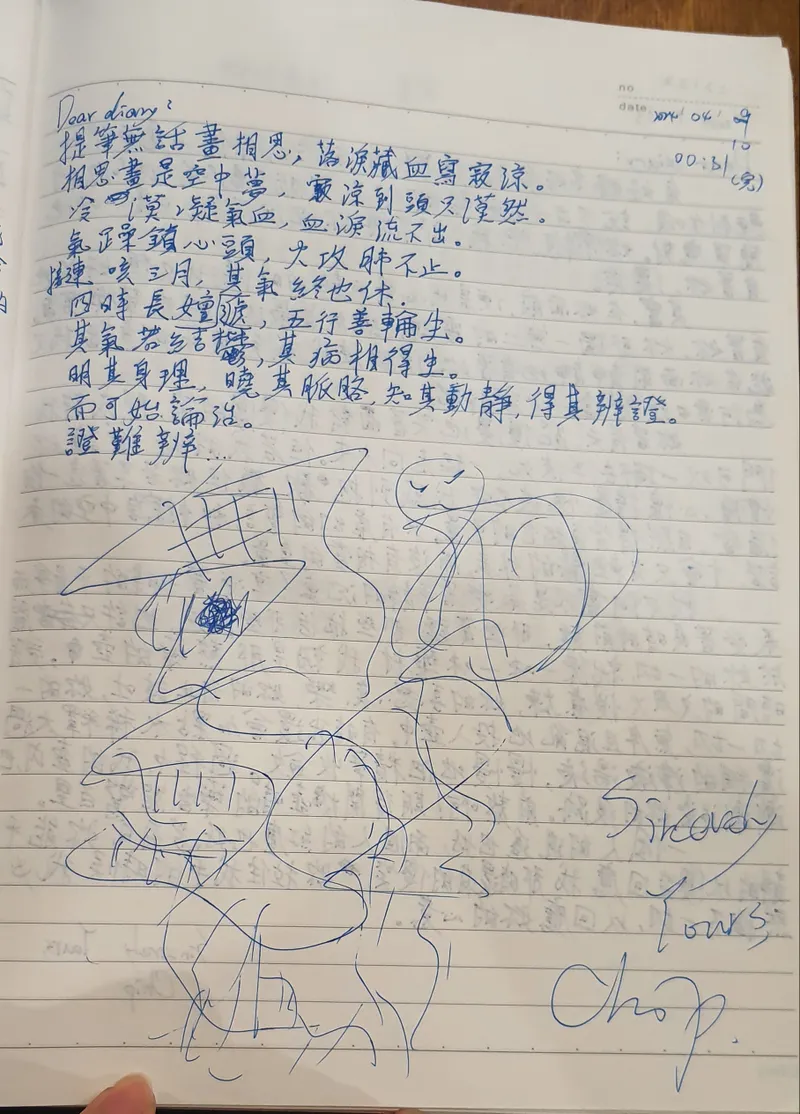 no
date 2024, 04, 9
10
00:31
(完)
Dear diary:
提筆無話畫相思，落淚藏血寫寂涼。
相思畫是空中夢，寂涼到頭只漠然。
冷漠凝氣血，血淚流不出。
氣躁鎖心頭，火攻肺不止。
接連咳三月，其氣終也休.
四時長嬗遞，五行善輪生。
其氣若結鬱，其病相得生。
明其身理，曉其脈略，知其動靜，得其辨證。
而可始論治。
證難辨...
Sincerely
Yours,
Chop.